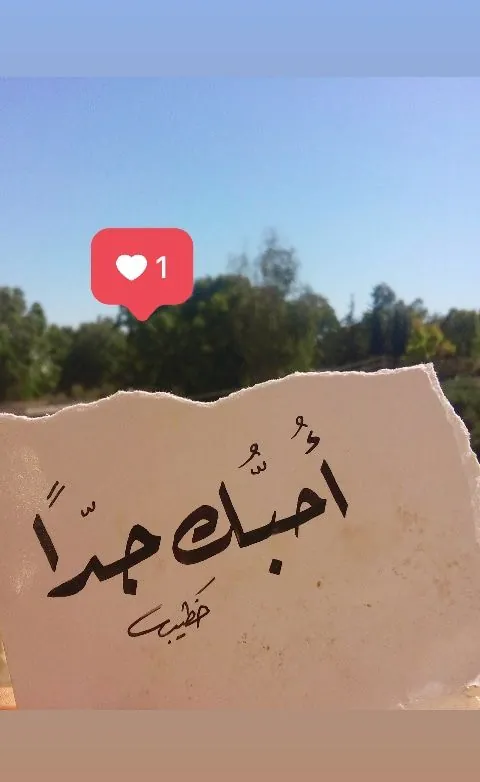 1
أُحبُّك جدّاً
خطيب